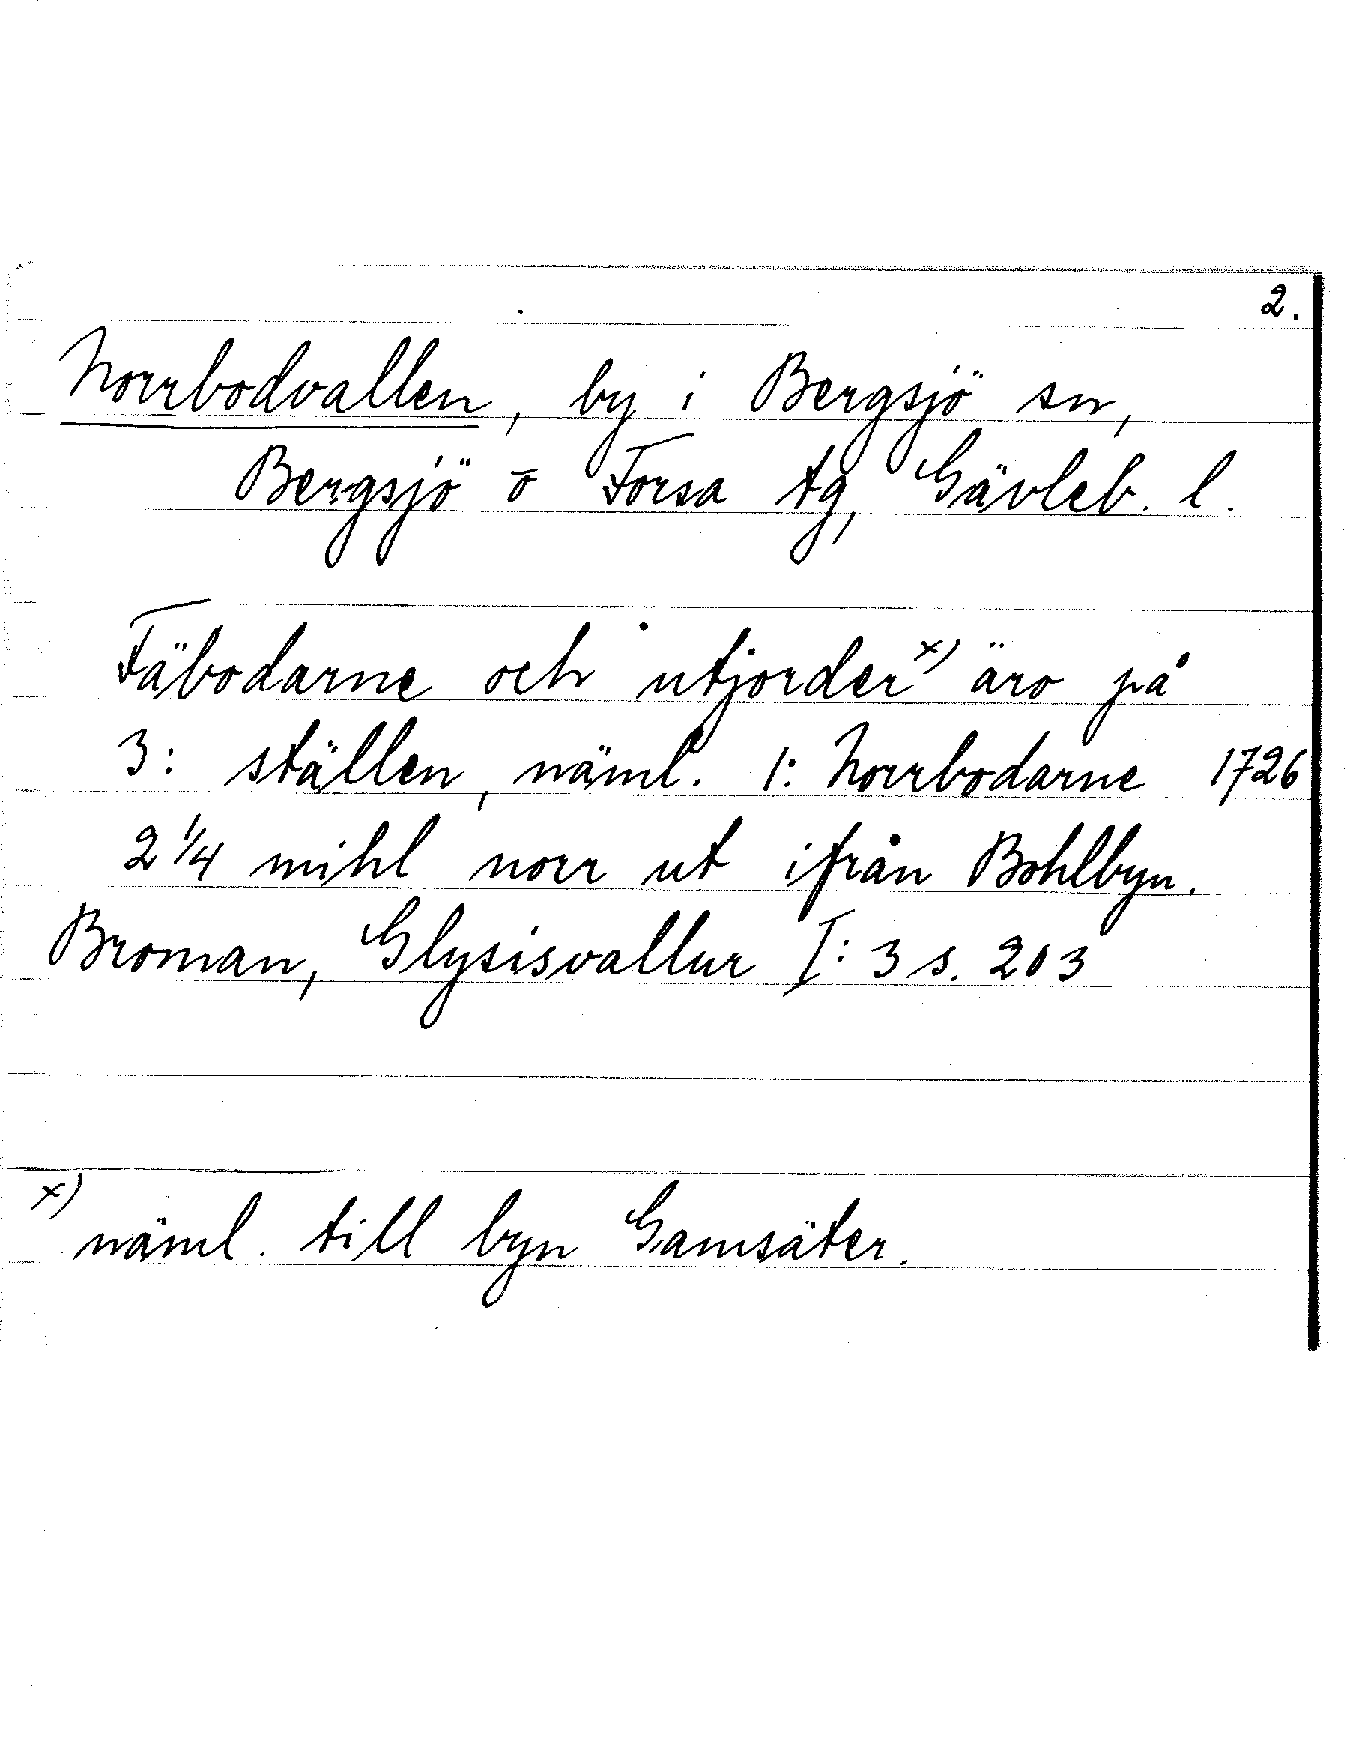 2.
Norrbodvallen, by i Bergsjö sn,
Bergsjö o Forsa tg, Gävleb. l.
Fäbodarne och utjorder x) äro på
3: ställen, näml. 1: Norrbodarne 1726
2 1/4 mihl norr ut ifrån Bohlbyn.
Broman, Glysisvallur I: 3 s. 203
x) näml. till byn Gamsäter.